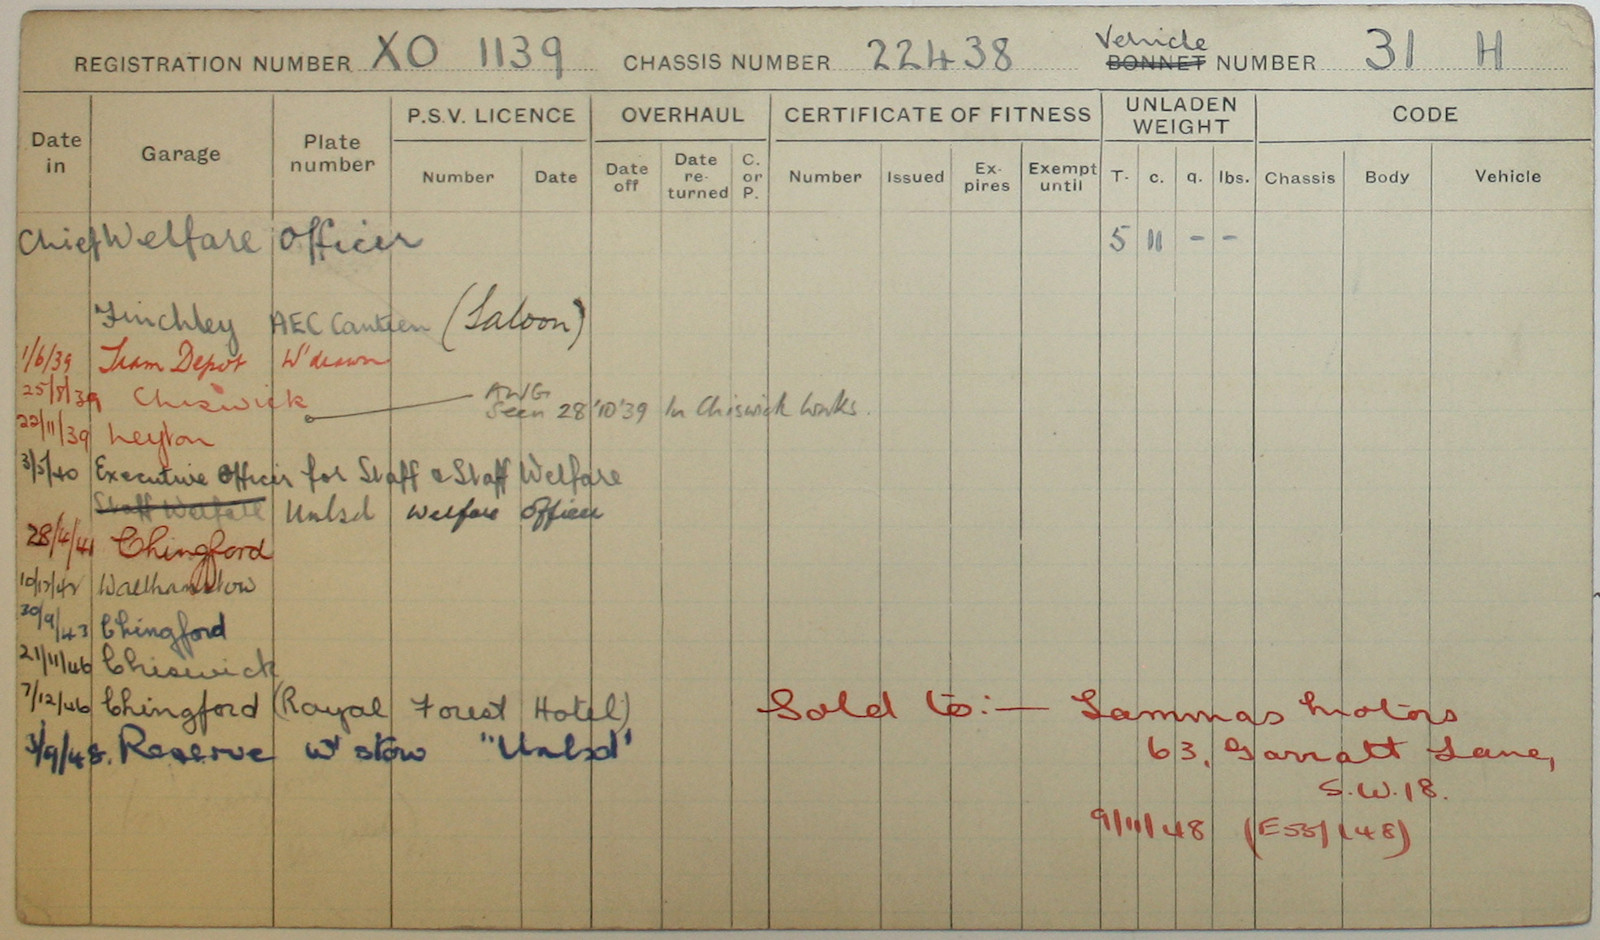 REGISTRATION NUMBER XO 1139 CHASSIS NUMBER 22438 Vehicle BONNET NUMBER 31 H
Date in Garage Plate number P.S.V. LICENCE OVERHAUL CERTIFICATE OF FITNESS UNLADEN WEIGHT CODE
Number Date Date off Date re-turned C. or P. Number Issued Ex-pires Exempt until T. c. q. lbs. Chassis Body Vehicle
Chief Welfare Officer 5 11 - -
Finchley AEC Canteen (Saloon)
1/6/39 Tram Depot W'drawn
25/8/39 Chiswick AWG
Seen 28'10'39 In Chiswick Works.
22/11/39 Leyton
3/5/40 Executive Officer for Staff & Staff Welfare
Staff Welfare Unlsd Welfare Officer
28/4/41 Chingford
10/12/42 Walthamstow
30/9/43 Chingford
21/11/46 Chiswick
7/12/46 Chingford (Royal Forest Hotel) Sold to:— Lammas Motors
3/9/48. Reserve W'stow "Unlsd" 63, Garratt Lane,
S.W.18.
9/11/48 (E55/148)